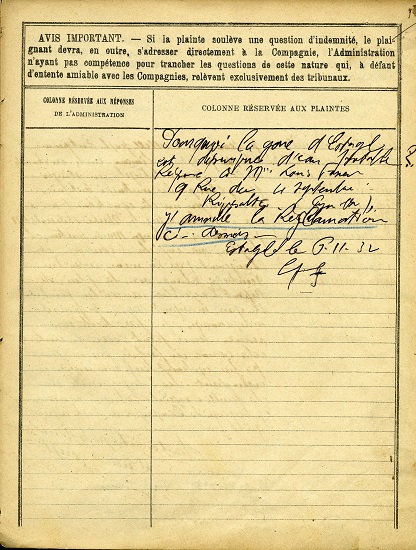 AVIS IMPORTANT. — Si la plainte soulève une question d'indemnité, le plai-
gnant devra, en outre, s'adresser directement à la Compagnie, l'Administration
n'ayant pas compétence pour trancher les questions de cette nature qui, à défaut
d'entente amiable avec les Compagnies, relèvent exclusivement des tribunaux.
COLONNE RÉSERVÉE AUX RÉPONSES
DE L'ADMINISTRATION
COLONNE RÉSERVÉE AUX PLAINTES
Pourquoi la gare d'Estagel
est dépourvue d'eau potable ?
Réponse à Mr Louis
9 Rue du 4 septembre
Rivesaltes
J'annule la Réclamation
ci-dessus
Estagel le 6-11-32